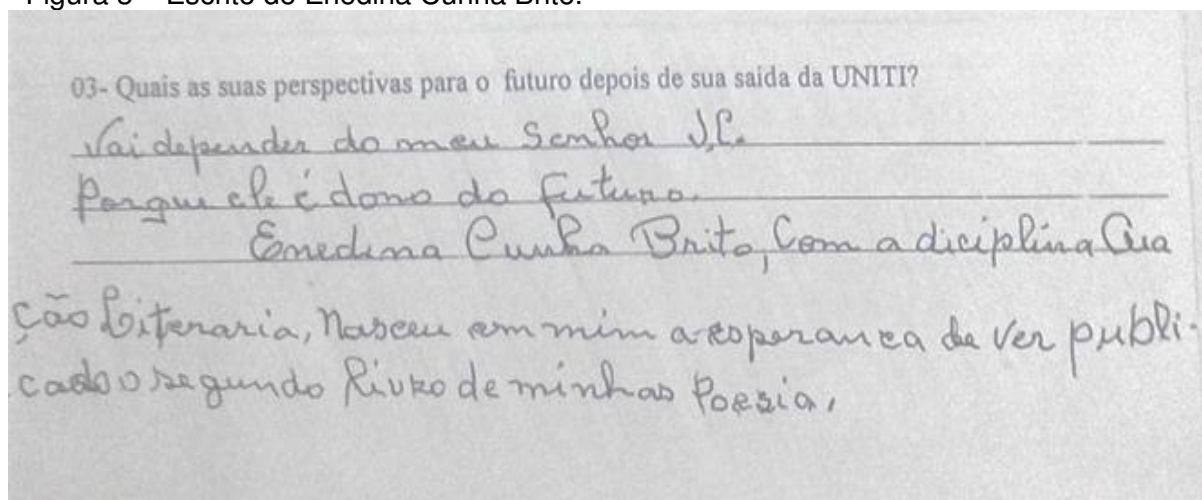 03- Quais as suas perspectivas para o futuro depois de sua saida da UNITI?
Vai depender do meu Senhor J.C.
Porque ele é dono do futuro.
Enedina Cunha Brito, Com a diciplina Cria
ção Literaria, Nasceu em mim a esperança de Ver publi-
cado o segundo Livro de minhas Poesia,